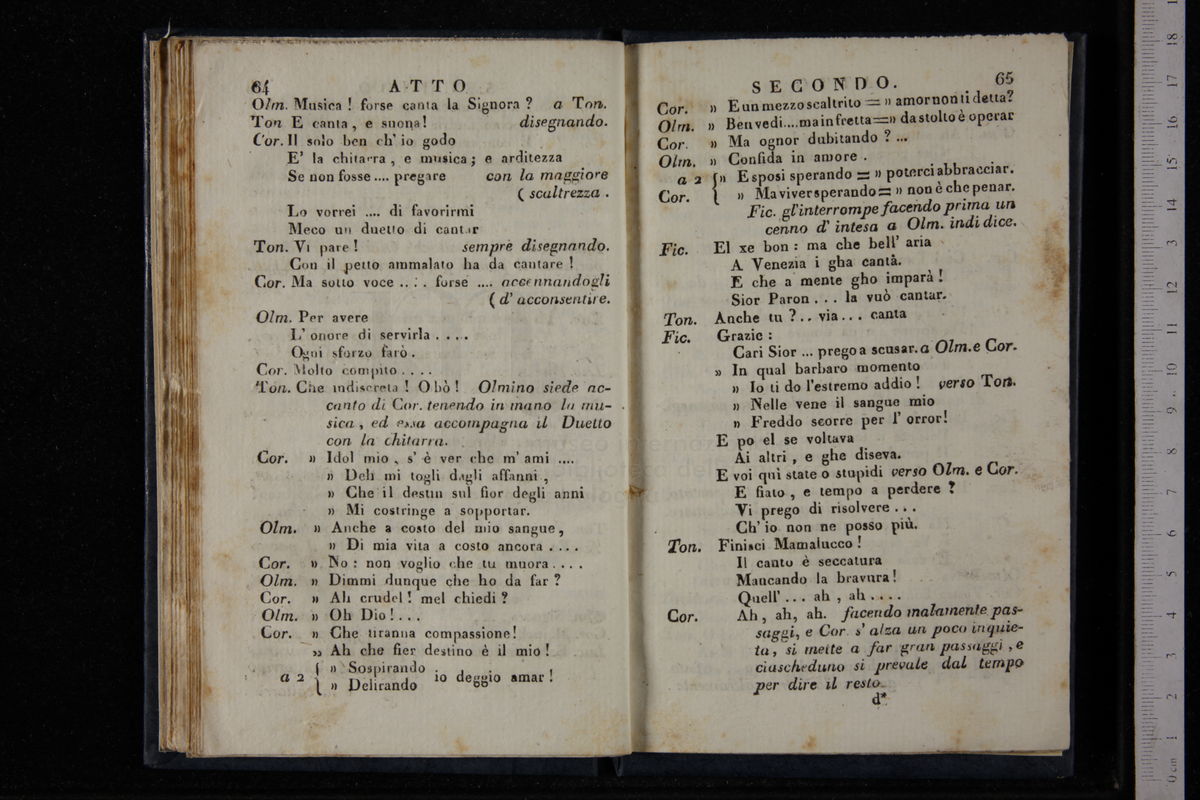 64 ATTO
Olm. Musica ! forse canta la Signora ? a Ton.
Ton E canta , e suona ! disegnando.
Cor. Il solo ben ch' io godo
E' la chitarra , e musica ; e arditezza
Se non fosse .... pregare con la maggiore
( scaltrezza .
Lo vorrei .... di favorirmi
Meco un duetto di cantar
Ton. Vi pare ! sempre disegnando.
Con il petto ammalato ha da cantare !
Cor. Ma sotto voce .. : . forse .... accennandogli
( d' acconsentire.
Olm. Per avere
L' onore di servirla . . . .
Ogni sforzo farò .
Cor. Molto compito . . . .
Ton. Che indiscreta ! O bò ! Olmino siede ac-
canto di Cor. tenendo in mano la mu-
sica , ed essa accompagna il Duetto
con la chitarra.
Cor. » Idol mio , s' è ver che m' ami ....
» Deh mi togli dagli affanni ,
» Che il destin sul fior degli anni
» Mi costringe a sopportar.
Olm. » Anche a costo del mio sangue ,
» Di mia vita a costo ancora . . . .
Cor. » No : non voglio che tu muora . . . .
Olm. » Dimmi dunque che ho da far ?
Cor. » Ah crudel ! mel chiedi ?
Olm. » Oh Dio ! . . .
Cor. » Che tiranna compassione !
» Ah che fier destino è il mio !
a 2 { » Sospirando io deggio amar !
» Delirando
SECONDO. 65
Cor. » E un mezzo scaltrito = » amor non ti detta ?
Olm. » Ben vedi .... ma in fretta = » da stolto è operar
Cor. » Ma ognor dubitando ? ...
Olm. » Confida in amore .
a 2 { » Esposi sperando = » poterci abbracciar.
Cor. » Ma viver sperando = » non è che penar.
Fic. gl' interrompe facendo prima un
cenno d' intesa a Olm. indi dice.
Fic. El xe bon : ma che bell' aria
A Venezia i gha cantà.
E che a mente gho imparà !
Sior Paron . . . la vuò cantar.
Ton. Anche tu ? . . via . . . canta
Fic. Grazie :
Cari Sior ... prego a scusar. a Olm. e Cor.
» In qual barbaro momento
» Io ti do l' estremo addio ! verso Ton.
» Nelle vene il sangue mio
» Freddo scorre per l' orror !
E po el se voltava
Ai altri , e ghe diseva.
E voi quì state o stupidi verso Olm. e Cor.
E fiato , e tempo a perdere ?
Vi prego di risolvere . . .
Ch' io non ne posso più.
Ton. Finisci Mamalucco !
Il canto è seccatura
Mancando la bravura !
Quell' . . . ah , ah . . . .
Cor. Ah , ah , ah. facendo malamente pas-
saggi, e Cor. s' alza un poco inquie-
ta , si mette a far gran passaggi , e
ciascheduno si prevale dal tempo
per dire il resto.
d*